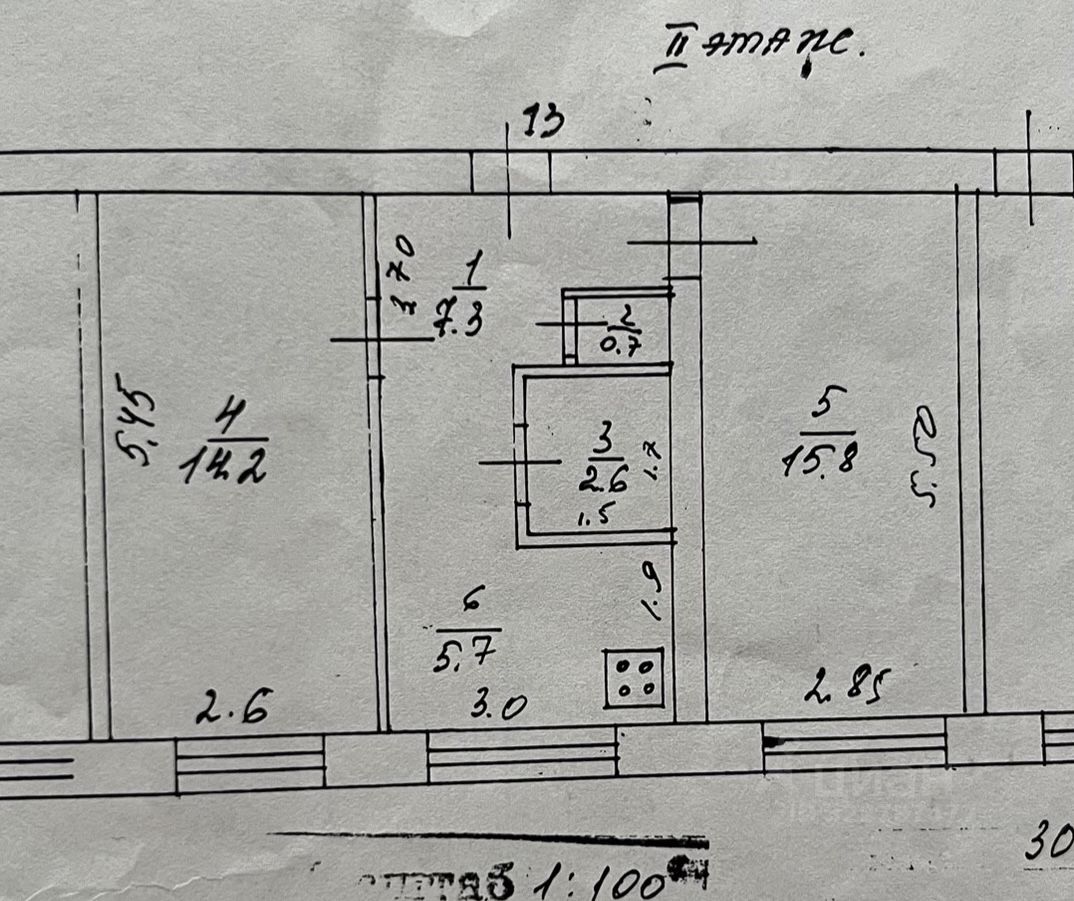 II этаж.
13
3.70
1
7.3
2
0.7
5.45
4
14.2
3
2.6
1.7
1.5
5
15.8
5.50
6
5.7
1.9
2.6
3.0
2.85
1:100
30